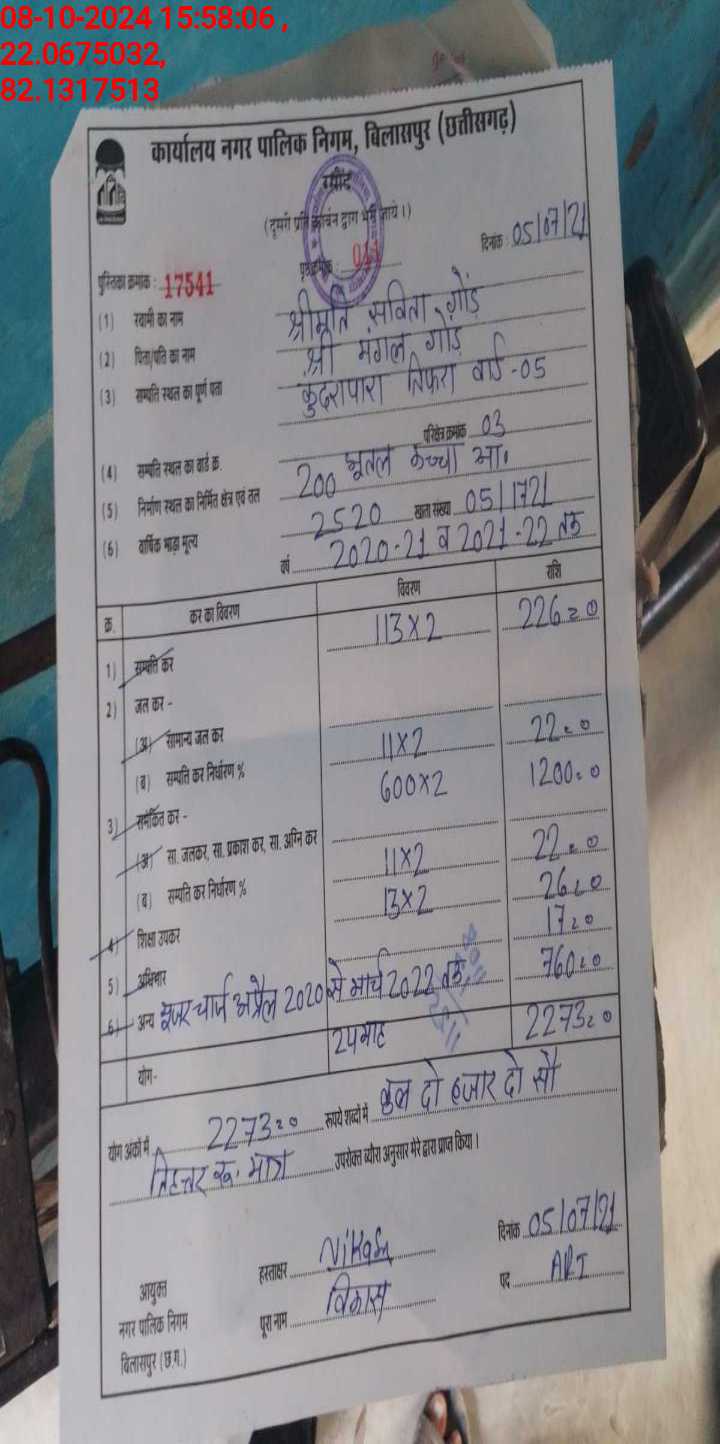 08-10-2024 15:58:06 ,
22.0675032,
82.1317513
कार्यालय नगर पालिक निगम, बिलासपुर (छत्तीसगढ़)
रसीद
(दूसरी प्रति कार्बन द्वारा भरी जाये।)
पुस्तिका क्रमांक : 17541 पृष्ठ क्रमांक : 011 दिनांक : 05/07/21
(1) स्वामी का नाम श्रीमति सविता गोंड़
(2) पिता/पति का नाम श्री मंगल गोंड़
(3) सम्पति स्थल का पूर्ण पता कुदरापारा तिफरा वार्ड -05
(4) सम्पति स्थल का वार्ड क्र. परिक्षेत्र क्रमांक 03
(5) निर्माण स्थल का निर्मित क्षेत्र एवं तल 200 भूतल कच्चा आ.
(6) वार्षिक भाड़ा मूल्य 2520 खाता संख्या 05/1721
वर्ष 2020-21 व 2021-22 तक
क्र. कर का विवरण विवरण राशि
1) सम्पत्ति कर 113x2 226=0
2) जल कर -
(अ) सामान्य जल कर 11x2 22=0
(ब) सम्पति कर निर्धारण % 600x2 1200=0
3) समेकित कर -
(अ) सा. जलकर, सा. प्रकाश कर, सा. अग्नि कर 11x2 22=0
(ब) सम्पति कर निर्धारण % 13x2 26=0
4) शिक्षा उपकर 17=0
5) अधिभार 760=0
6) अन्य यूजर चार्ज अप्रैल 2020 से मार्च 2022 तक
24 माह 2273=0
योग-
योग अंकों में 2273=0 रूपये शब्दों में कुल दो हजार दो सौ
तिहत्तर रू. मात्र उपरोक्त ब्यौरा अनुसार मेरे द्वारा प्राप्त किया।
दिनांक 05/07/21
आयुक्त हस्ताक्षर Vikash पद ARI
नगर पालिक निगम पूरा नाम विकास
बिलासपुर (छ.ग.)